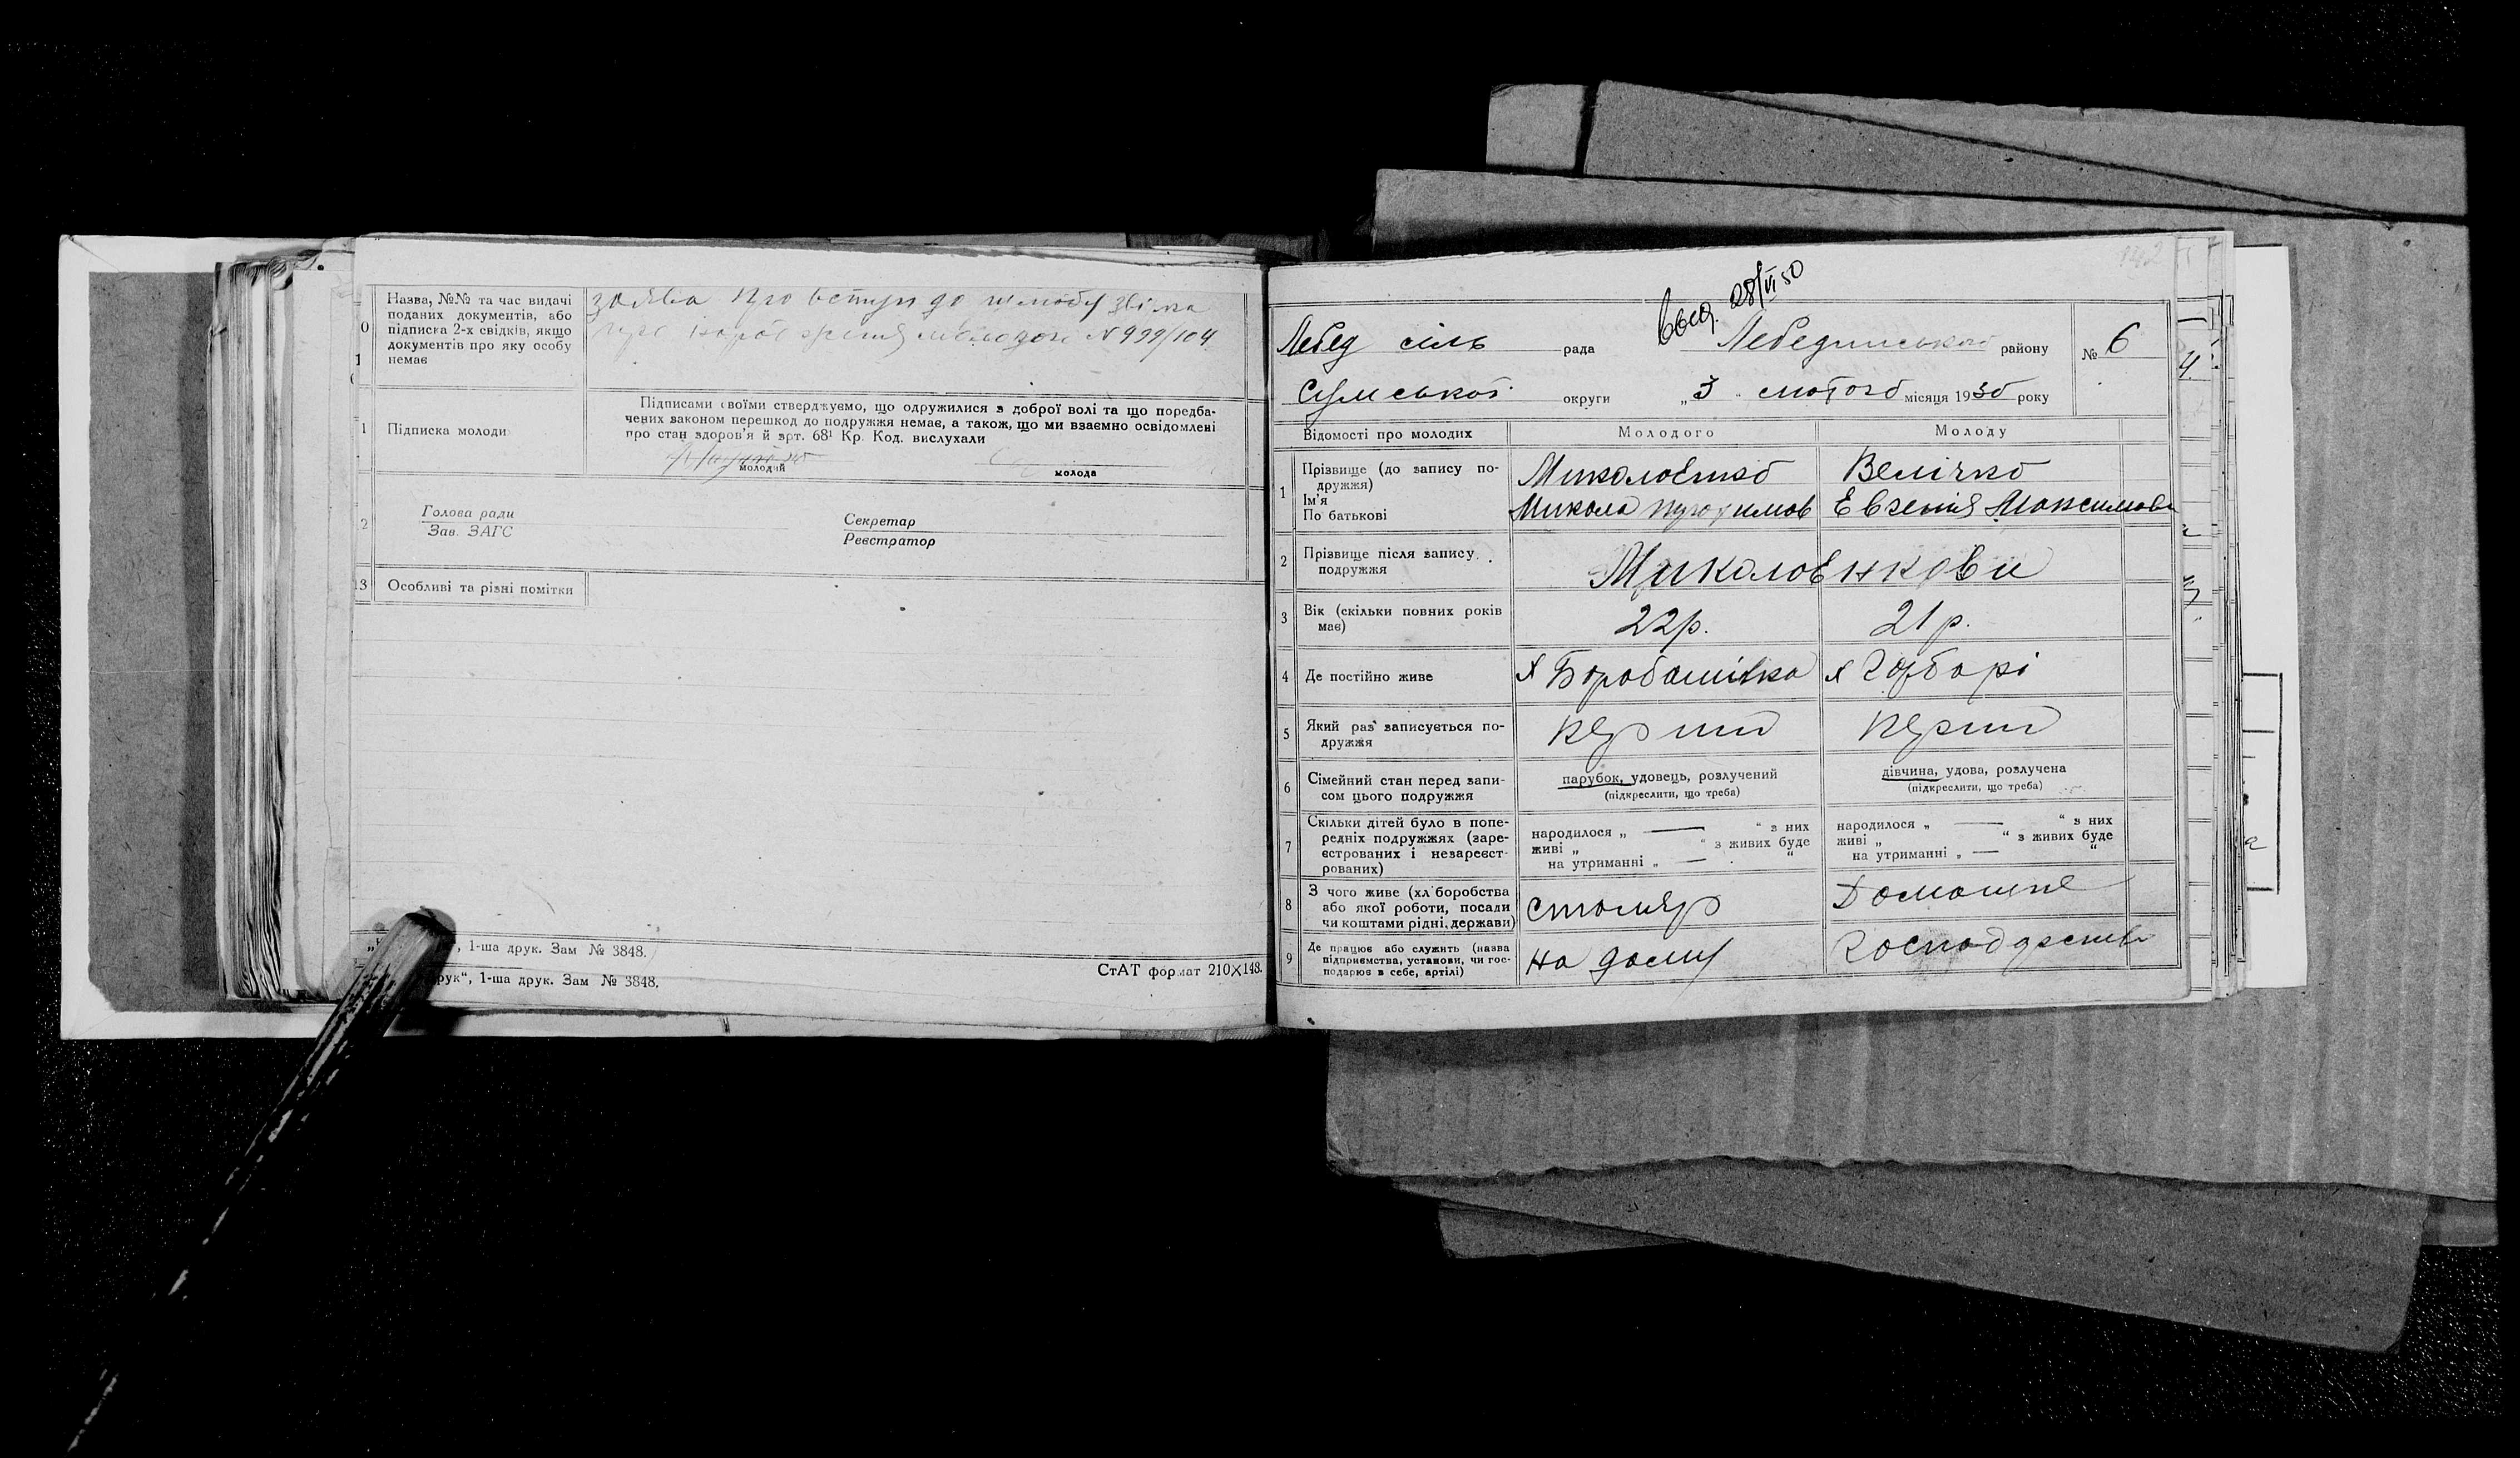 Назва, №№ та час видачі
поданих документів, або
підписка 2-х свідків, якщо
документів про яку особу
немає
заява про вступ до шлюбу
№ 999/104
1 Підписка молоди
Підписами своїми стверджуємо, що одружилися з доброї волі та що поредба-
чених законом перешкод до подружжя немає, а також, що ми взаємно освідомлені
про стан здоров'я й арт. 68¹ Кр. Код. вислухали
молодий
молода
2
Голова ради
Зав. ЗАГС
Секретар
Реєстратор
13 Особливі та різні помітки
", 1-ша друк. Зам № 3848.
рук", 1-ша друк. Зам № 3848.
СтАТ формат 210X148.
142
28/VI 50
Лебед сіль рада Лебединського району № 6
Сумської округи „3" лютого місяця 1930 року
Відомості про молодих Молодого Молоду
1 Прізвище (до запису по-
дружжя)
Ім'я
По батькові
Миколаєнко
Микола
Велічко
Евгенія Максимовн
2 Прізвище після запису
подружжя
Миколоенкови
3 Вік (скільки повних років
має)
22р. 21р.
4 Де постійно живе
х Барабашівка х Гарбарі
5 Який раз записується по-
дружжя
перший перший
6 Сімейний стан перед запи-
сом цього подружжя
парубок, удовець, розлучений
(підкреслити, що треба)
дівчина, удова, розлучена
(підкреслити, що треба)
7 Скільки дітей було в попе-
редніх подружжях (заре-
єстрованих і незареєст-
рованих)
народилося „ — " з них
живі „ " з живих буде
на утриманні „ — "
народилося „ — " з них
живі „ " з живих буде
на утриманні „ — "
8 З чого живе (хл боробства
або якої роботи, посади
чи коштами рідні, держави)
столяр
Домашнє
9 Де працює або служить (назва
підприємства, установи, чи гос-
подарює в себе, артілі)
на дому
господарств